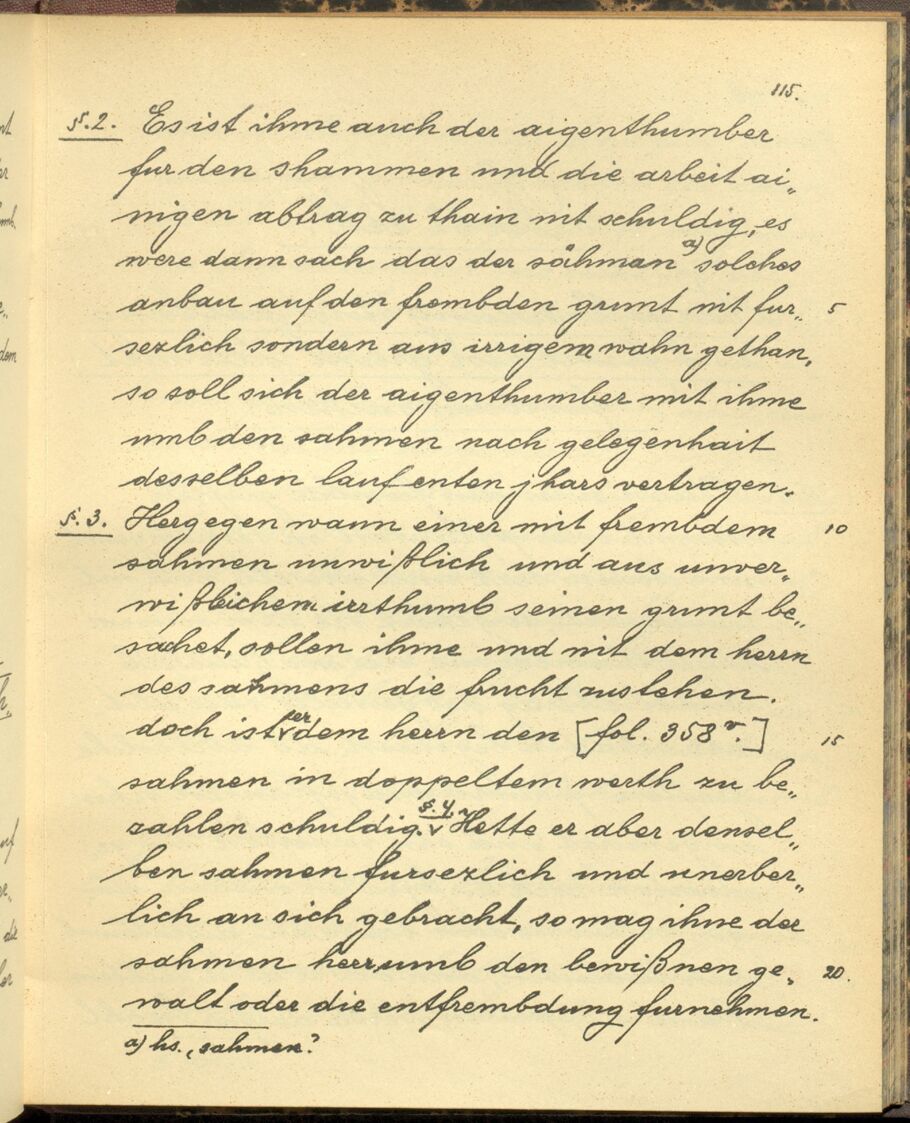 115.
§.2. Es ist ihme auch der aigenthumber
fur den shammen und die arbeit ai„
nigen abtrag zu thain nit schuldig, es
were dann sach das der sähman a) solches
anbau auf den frembden grunt nit fur„ 5
sezlich sondern aus irrigem wahn gethan,
so soll sich der aigenthumber mit ihme
umb den sahmen nach gelegenhait
desselben laufenten jhars vertragen.
§.3. Hergegen wann einer mit frembdem 10
sahmen unwißlich und aus unver„
wißlichem irrthumb seinen grunt be„
sachet, sollen ihme und nit dem herrn
des sahmens die frucht zustehen.
doch ist er dem herrn den [fol. 358 v.] 15
sahmen in doppeltem werth zu be„
zahlen schuldig. §.4. Hette er aber densel„
ben sahmen fursezlich und unerber„
lich an sich gebracht, so mag ihne der
sahmen herr umb den bewißnen ge„ 20.
walt oder die entfrembdung furnehmen.
a) hs. „sahmen?